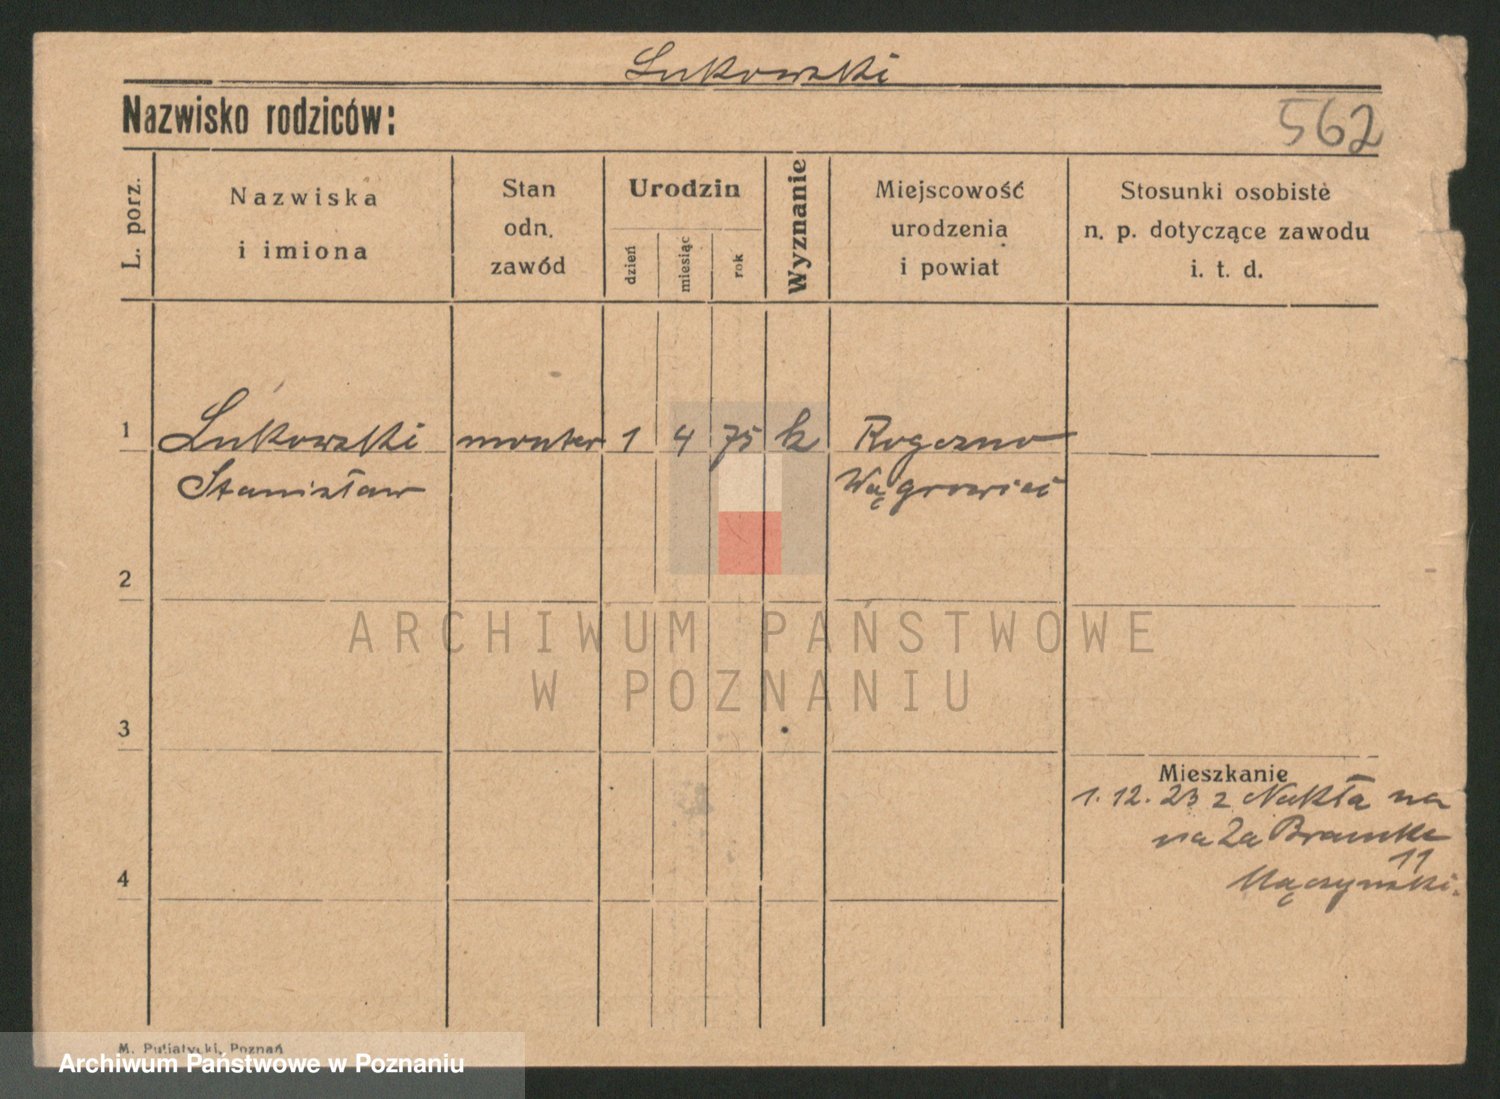 Lukowski
Nazwisko rodziców:
562
L. porz.
Nazwiska
i imiona
Stan
odn.
zawód
Urodzin
dzień
miesiąc
rok
Wyznanie
Miejscowość
urodzenia
i powiat
Stosunki osobiste
n. p. dotyczące zawodu
i. t. d.
1
Lukowski
Stanisław
monter
1
4
75
k
Rogozno
Wągrowiec
2
3
4
Mieszkanie
1. 12. 23 z Nakła na
11
ARCHIWUM PAŃSTWOWE
W POZNANIU
M. Putiatycki, Poznań
Archiwum Państwowe w Poznaniu